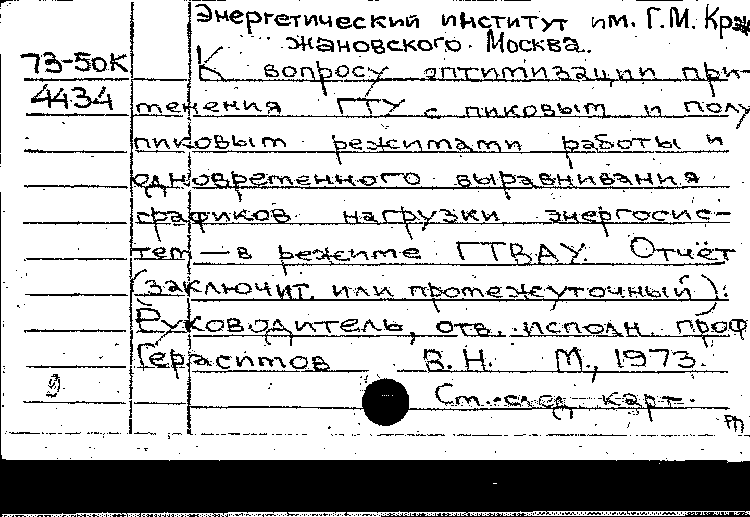 Энергетический институт им. Г.М. Крж
жановского. Москва.
73-50К К вопросу оптимизации при-
4434 менения ГТУ с пиковым и полу
пиковым режимами работы и
одновременного выравнивания
графиков нагрузки энергосис-
тем — в режиме ГТВАУ. Отчёт
(заключит. или промежуточный):
Руководитель, отв. исполн. проф
Герасимов В.Н. М., 1973.
См. след. карт.